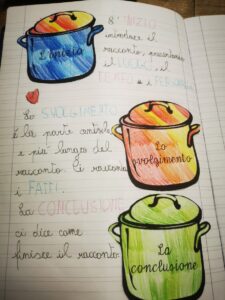 L'inizio
L'INIZIO
introduce il
racconto, presentando
il LUOGO, il
TEMPO e i PERSONAGGI
Lo SVOLGIMENTO
È la parte centrale
e più lunga del
racconto. Ci racconta
i FATTI.
La CONCLUSIONE
ci dice come
finisce il racconto.
Lo
svolgimento
La
conclusione